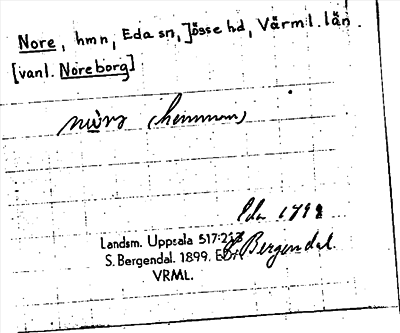 Nore, hmn, Eda sn, Jösse hd, Värml. län.
[vanl. Noreborg]
(hemman)
Eda 1798
Landsm. Uppsala 517:213
S. Bergendal
S. Bergendal. 1899. EDA
VRML.